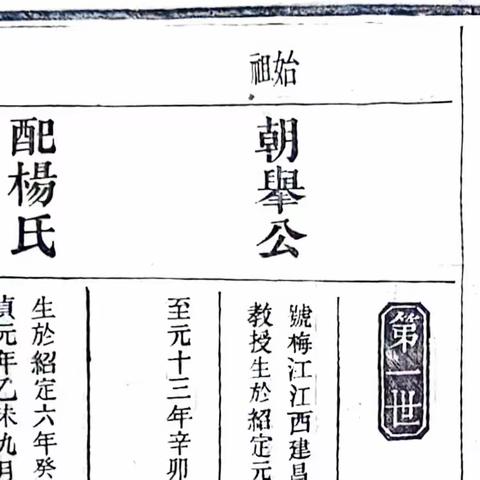 始祖
朝舉公
配楊氏
第一世
號梅江江西建昌
教授生於紹定元
至元十三年辛卯
生於紹定六年癸
貞元年乙未九月